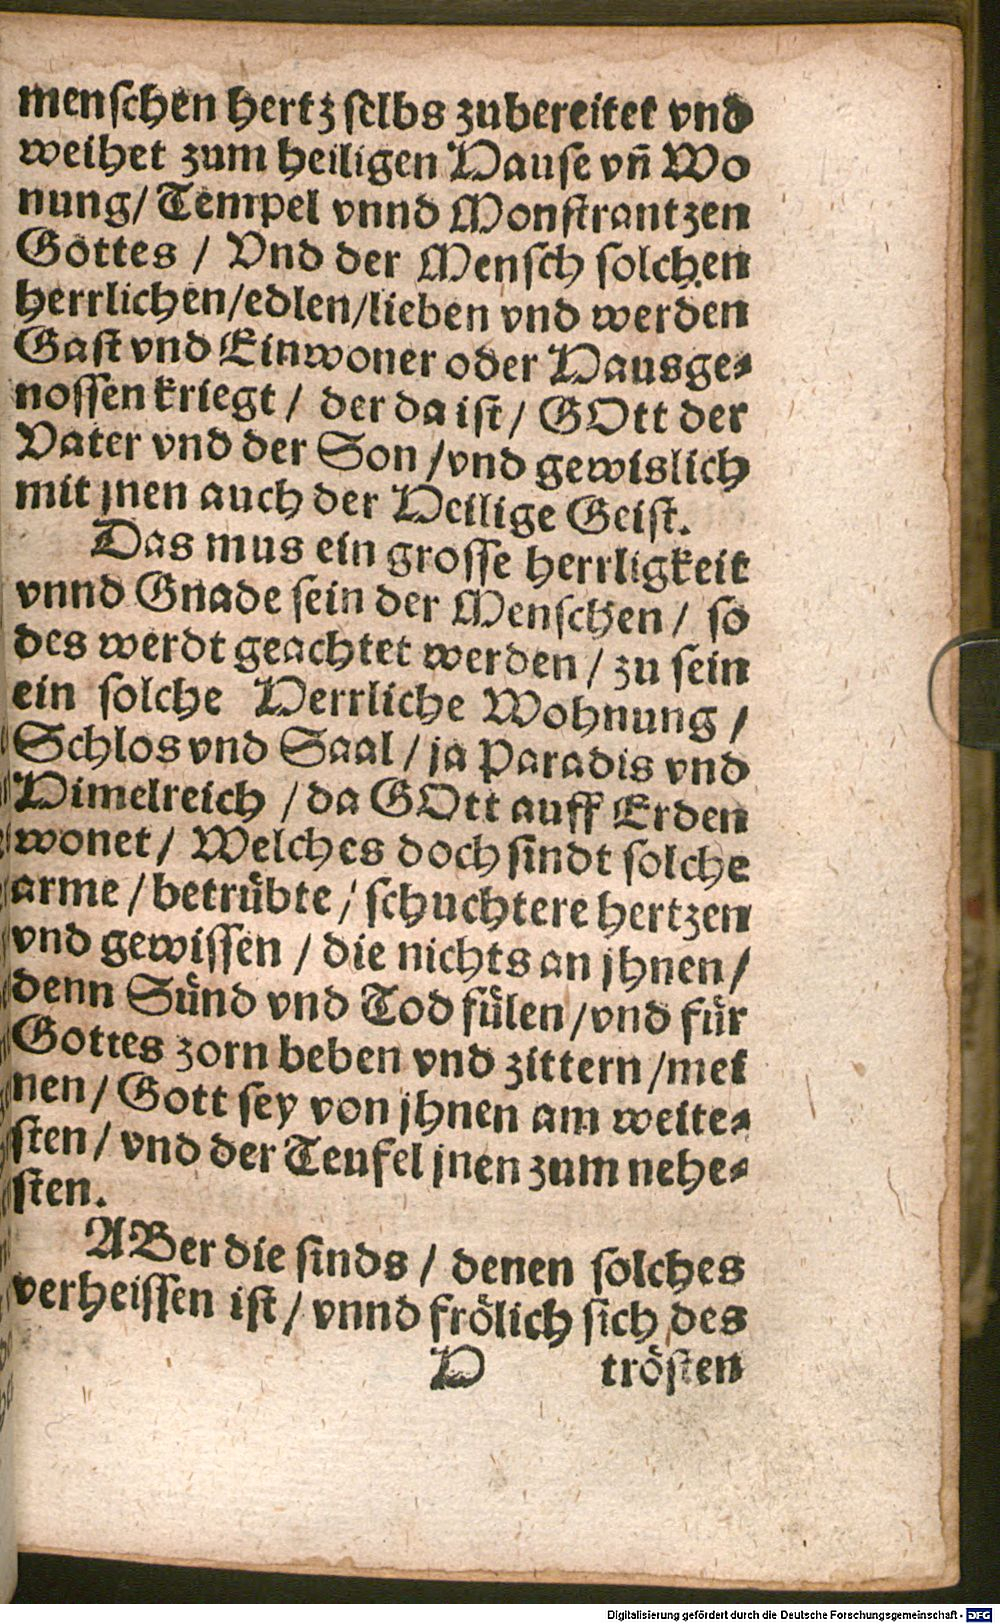 menschen hertz selbs zubereitet vnd
weihet zum heiligen Hause vn̄ Wo
nung/ Tempel vnnd Monstrantzen
Gottes / Vnd der Mensch solchen
herrlichen/edlen/lieben vnd werden
Gast vnd Einwoner oder Hausge⸗
nossen kriegt / der da ist/ GOtt der
Vater vnd der Son /vnd gewislich
mit jnen auch der Heilige Geist.
Das mus ein grosse herrligkeit
vnnd Gnade sein der Menschen / so
des werdt geachtet werden / zu sein
ein solche Herrliche Wohnung /
Schlos vnd Saal / ja Paradis vnd
Himelreich / da GOtt auff Erden
wonet / Welches doch sindt solche
arme / betrübte / schuchtere hertzen
vnd gewissen / die nichts an jhnen /
denn Sünd vnd Tod fülen /vnd für
Gottes zorn beben vnd zittern /mei
nen / Gott sey von jhnen am weite⸗
sten / vnd der Teufel jnen zum nehe⸗
sten.
ABer die sinds / denen solches
verheissen ist / vnnd frölich sich des
H trösten
Digitalisierung gefördert durch die Deutsche Forschungsgemeinschaft - DFG